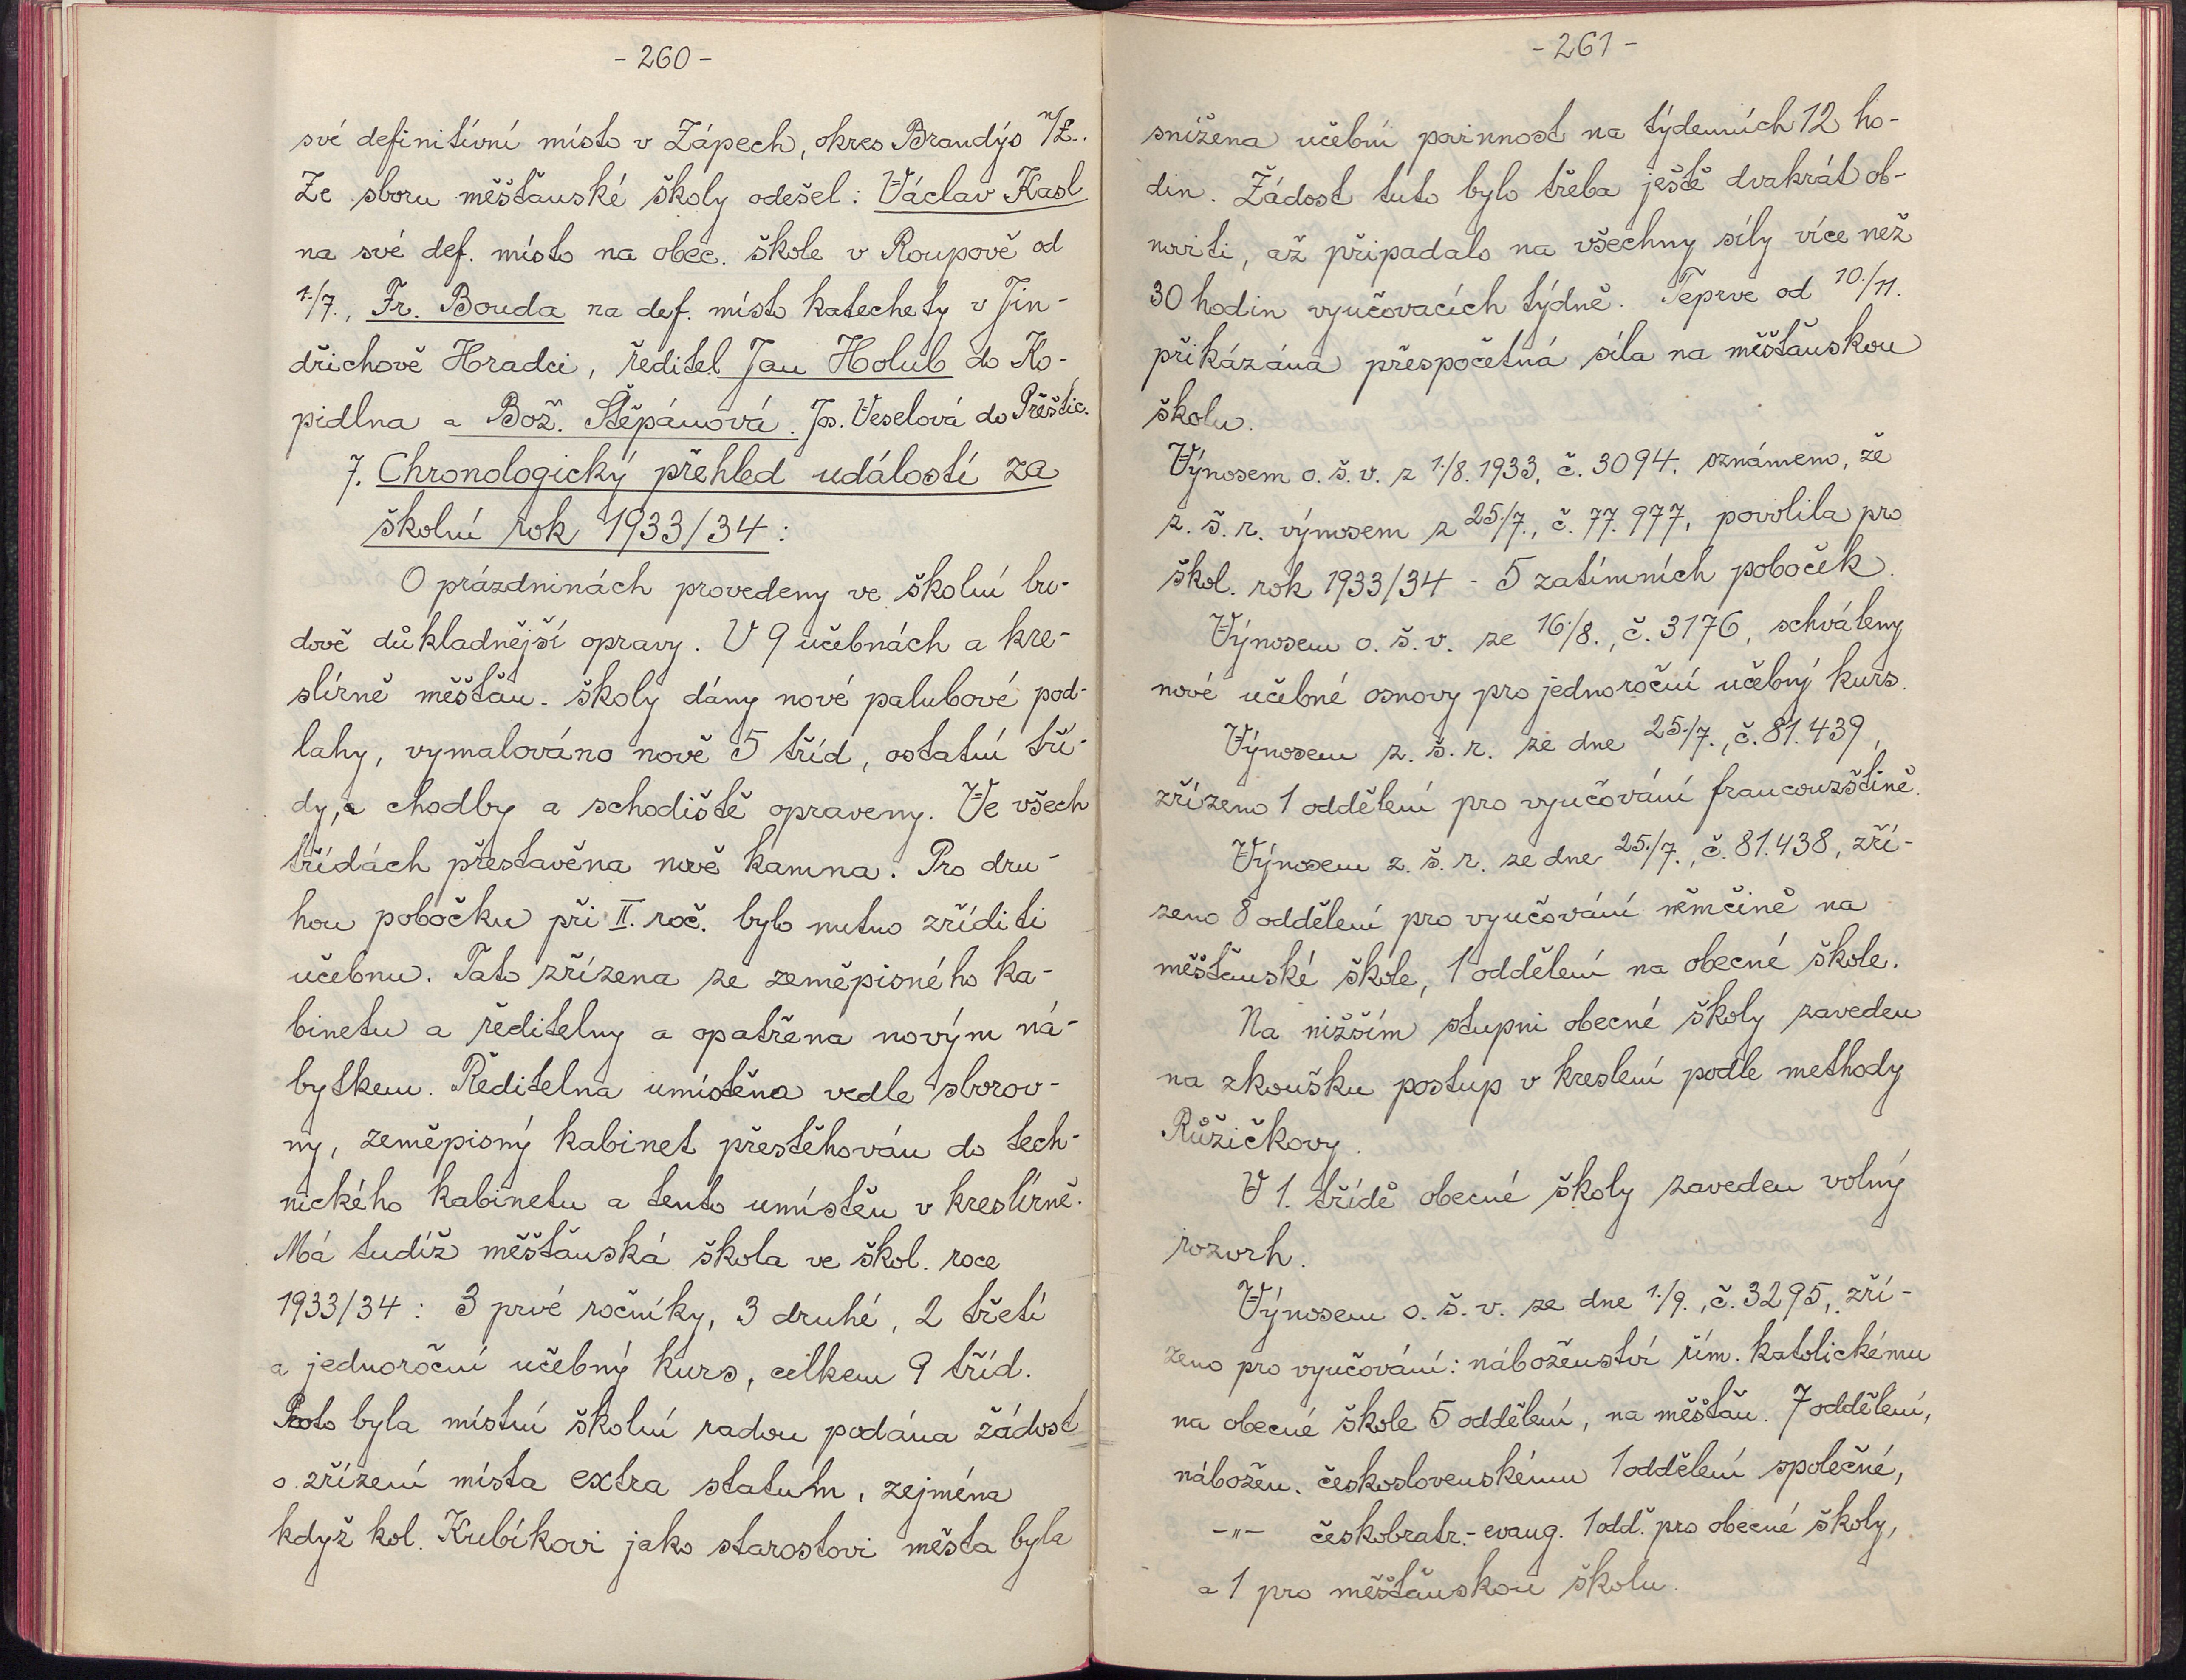 - 260 -
své definitívní místo v Zápech, okres Brandýs n/L..
Ze sboru měšťanské školy odešel: Václav Kasl
na své def. místo na obec. škole v Roupově od
1./7., Fr. Bouda na def. místo katechety v Jin-
dřichově Hradci, ředitel Jan Holub do Ko-
pidlna a Bož. Štěpánová. Jos. Veselová do Přeštic.
7. Chronologický přehled událostí za
školní rok 1933/34:
O prázdninách provedeny ve školní bu-
dově důkladnější opravy. V 9 učebnách a kre-
slírně měšťan. školy dány nové palubové pod-
lahy, vymalováno nově 5 tříd, ostatní tří-
dy, a chodby a schodiště opraveny. Ve všech
třídách přestavěna nově kamna. Pro dru-
hou pobočku při II. roč. bylo nutno zříditi
učebnu. Tato zřízena ze zeměpisného ka-
binetu a ředitelny a opatřena novým ná-
bytkem. Ředitelna umístěna vedle sborov-
ny, zeměpisný kabinet přestěhován do tech-
nického kabinetu a tento umístěn v kreslírně.
Má tudíž měšťanská škola ve škol. roce
1933/34: 3 prvé ročníky, 3 druhé, 2 třetí
a jednoroční učebný kurs, celkem 9 tříd.
Proto byla místní školní radou podána žádost
o zřízení místa extra statum, zejména
když kol. Kubíkovi jako starostovi města byla
- 261 -
snížena učební povinnost na týdenních 12 ho-
din. Žádost tuto bylo třeba ještě dvakrát ob-
noviti, až připadalo na všechny síly více než
30 hodin vyučovacích týdně. Teprve od 10./11.
přikázána přespočetná síla na měšťanskou
školu.
Výnosem o. š. v. z 1./8. 1933, č. 3094. oznámeno, že
z. š. r. výnosem z 25./7., č. 77.977, povolila pro
škol. rok 1933/34 - 5 zatímních poboček.
Výnosem o. š. v. ze 16./8., č. 3176, schváleny
nové učebné osnovy pro jednoroční učebný kurs.
Výnosem z. š. r. ze dne 25./7., č. 81.439,
zřízeno 1 oddělení pro vyučování francouzštině.
Výnosem z. š. r. ze dne 25./7., č. 81.438, zří-
zeno 8 oddělení pro vyučování němčině na
měšťanské škole, 1 oddělení na obecné škole.
Na nižším stupni obecné školy zaveden
na zkoušku postup v kreslení podle methody
Růžičkovy.
V 1. třídě obecné školy zaveden volný
rozvrh.
Výnosem o. š. v. ze dne 1./9., č. 3295, zří-
zeno pro vyučování: náboženství řím. katolickému
na obecné škole 5 oddělení, na měšťan. 7 oddělení,
nábožen. československému 1 oddělení společné,
-"- českobratr.-evang. 1 odd. pro obecné školy,
a 1 pro měšťanskou školu.